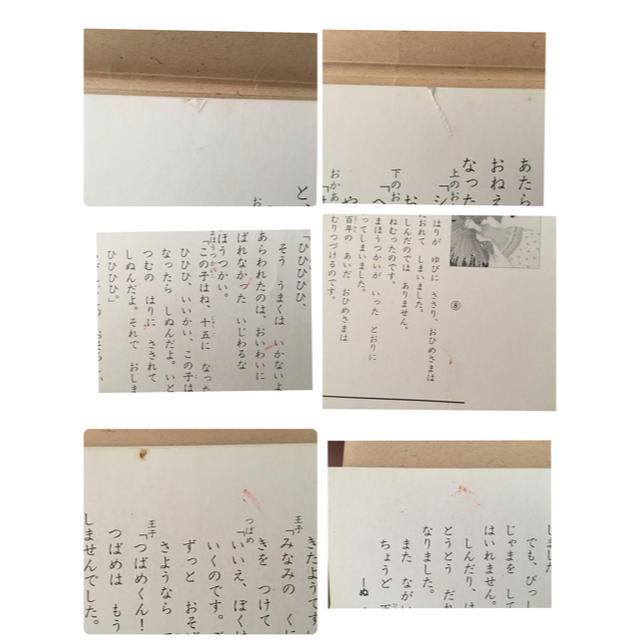 と、
お
あたら
おねえ
なった
上のお
「シ
お
下のお
「へ
や
おかあ
「
「ひひひひひ、
そう うまくは いかないよ
あらわれたのは、おいわいに
ばれなかった いじわるな
ほうつかい。
まほうつかい
「この子はね、十五に なった
ひひひ、いいかい、この子は
なったら しぬんだよ。いと
つむの はりに さされて
しぬんだよ。それで おしま
ひひひひ」
はりが ゆびに ささり、おひめさまは
たおれて しまいました。
しんだのでは ありません。
ねむったのです。
まほうつかいが いった とおりに
ってしまいました。
百年の あいだ おひめさまは
むりつづけるのです。
⑧
きたようです
王子
「みなみの くに
きを つけて
つばめ
「いいえ、ぼくは
いくのです。
ずっと おそば
さようなら
王子
「つばめくん！
つばめは もう
しませんでした。
しました
でも、びっし
じゃまを して
はいれません。
しんだり、け
とうとう だれ
なりました。
また ながい
ちょうど 百
―ぬ